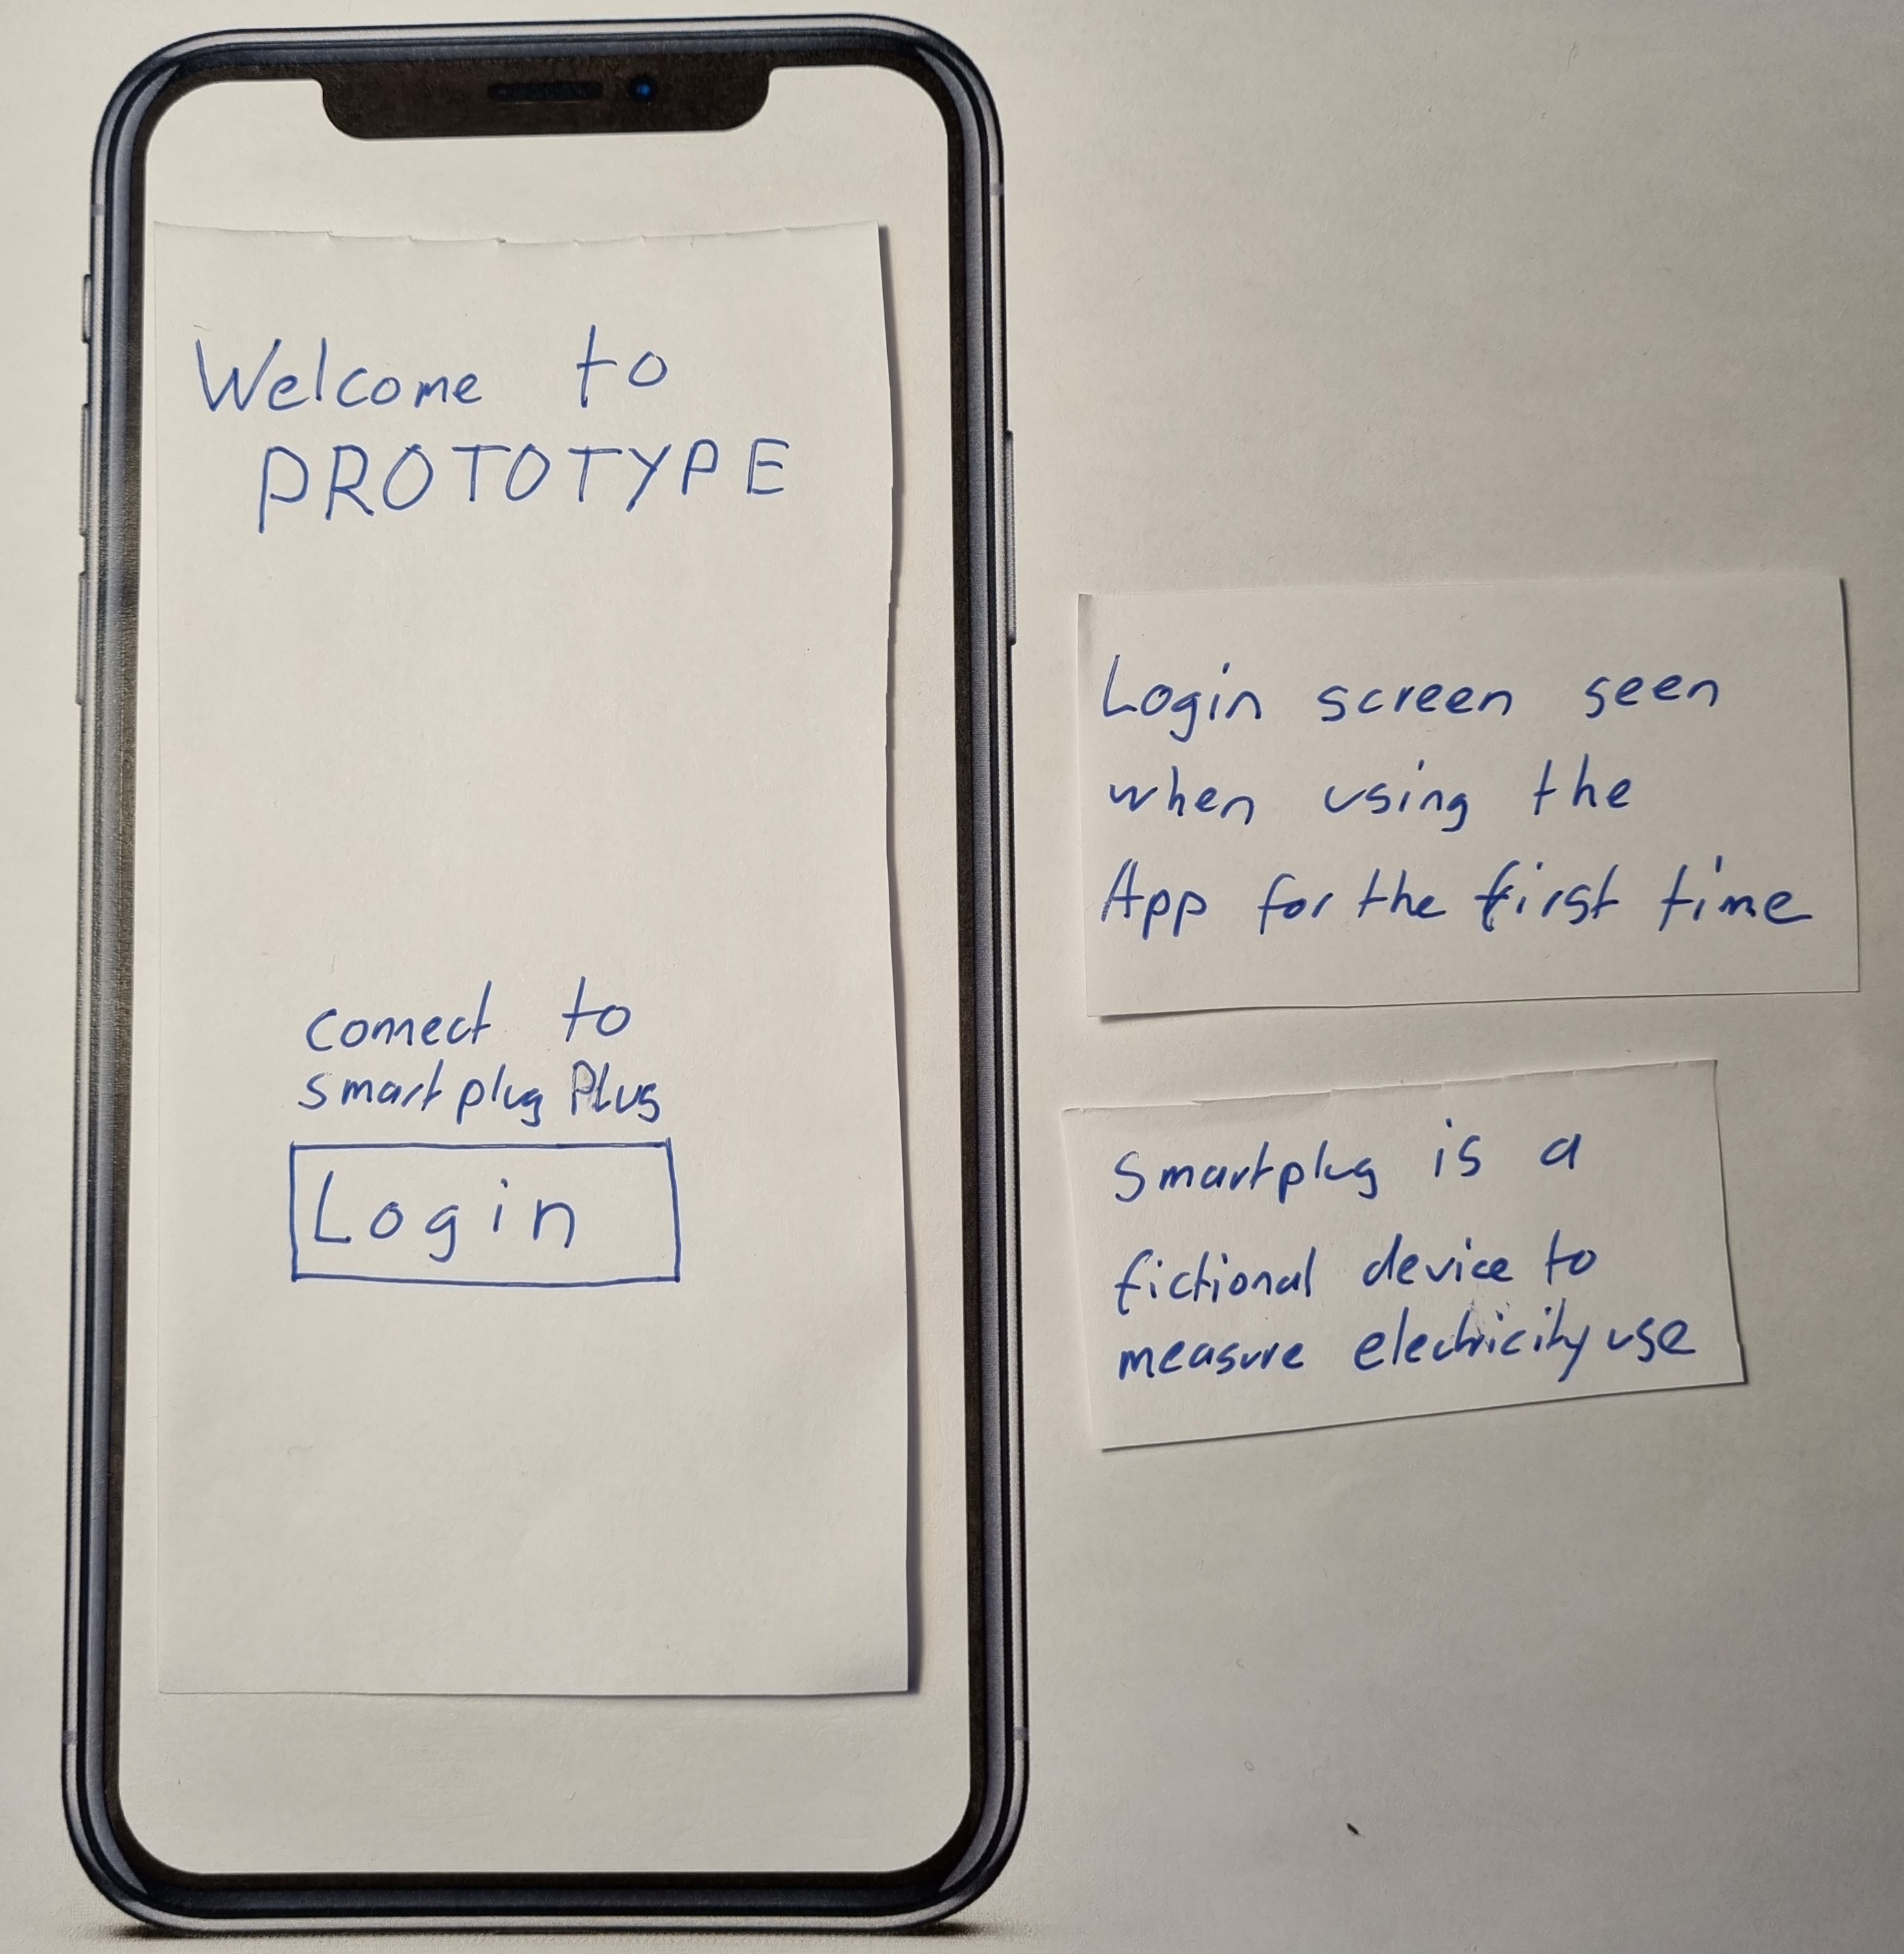 Welcome to
PROTOTYPE
connect to
smartplug Plus
Login
Login screen seen
when using the
App for the first time
Smartplug is a
fictional device to
measure electricity use